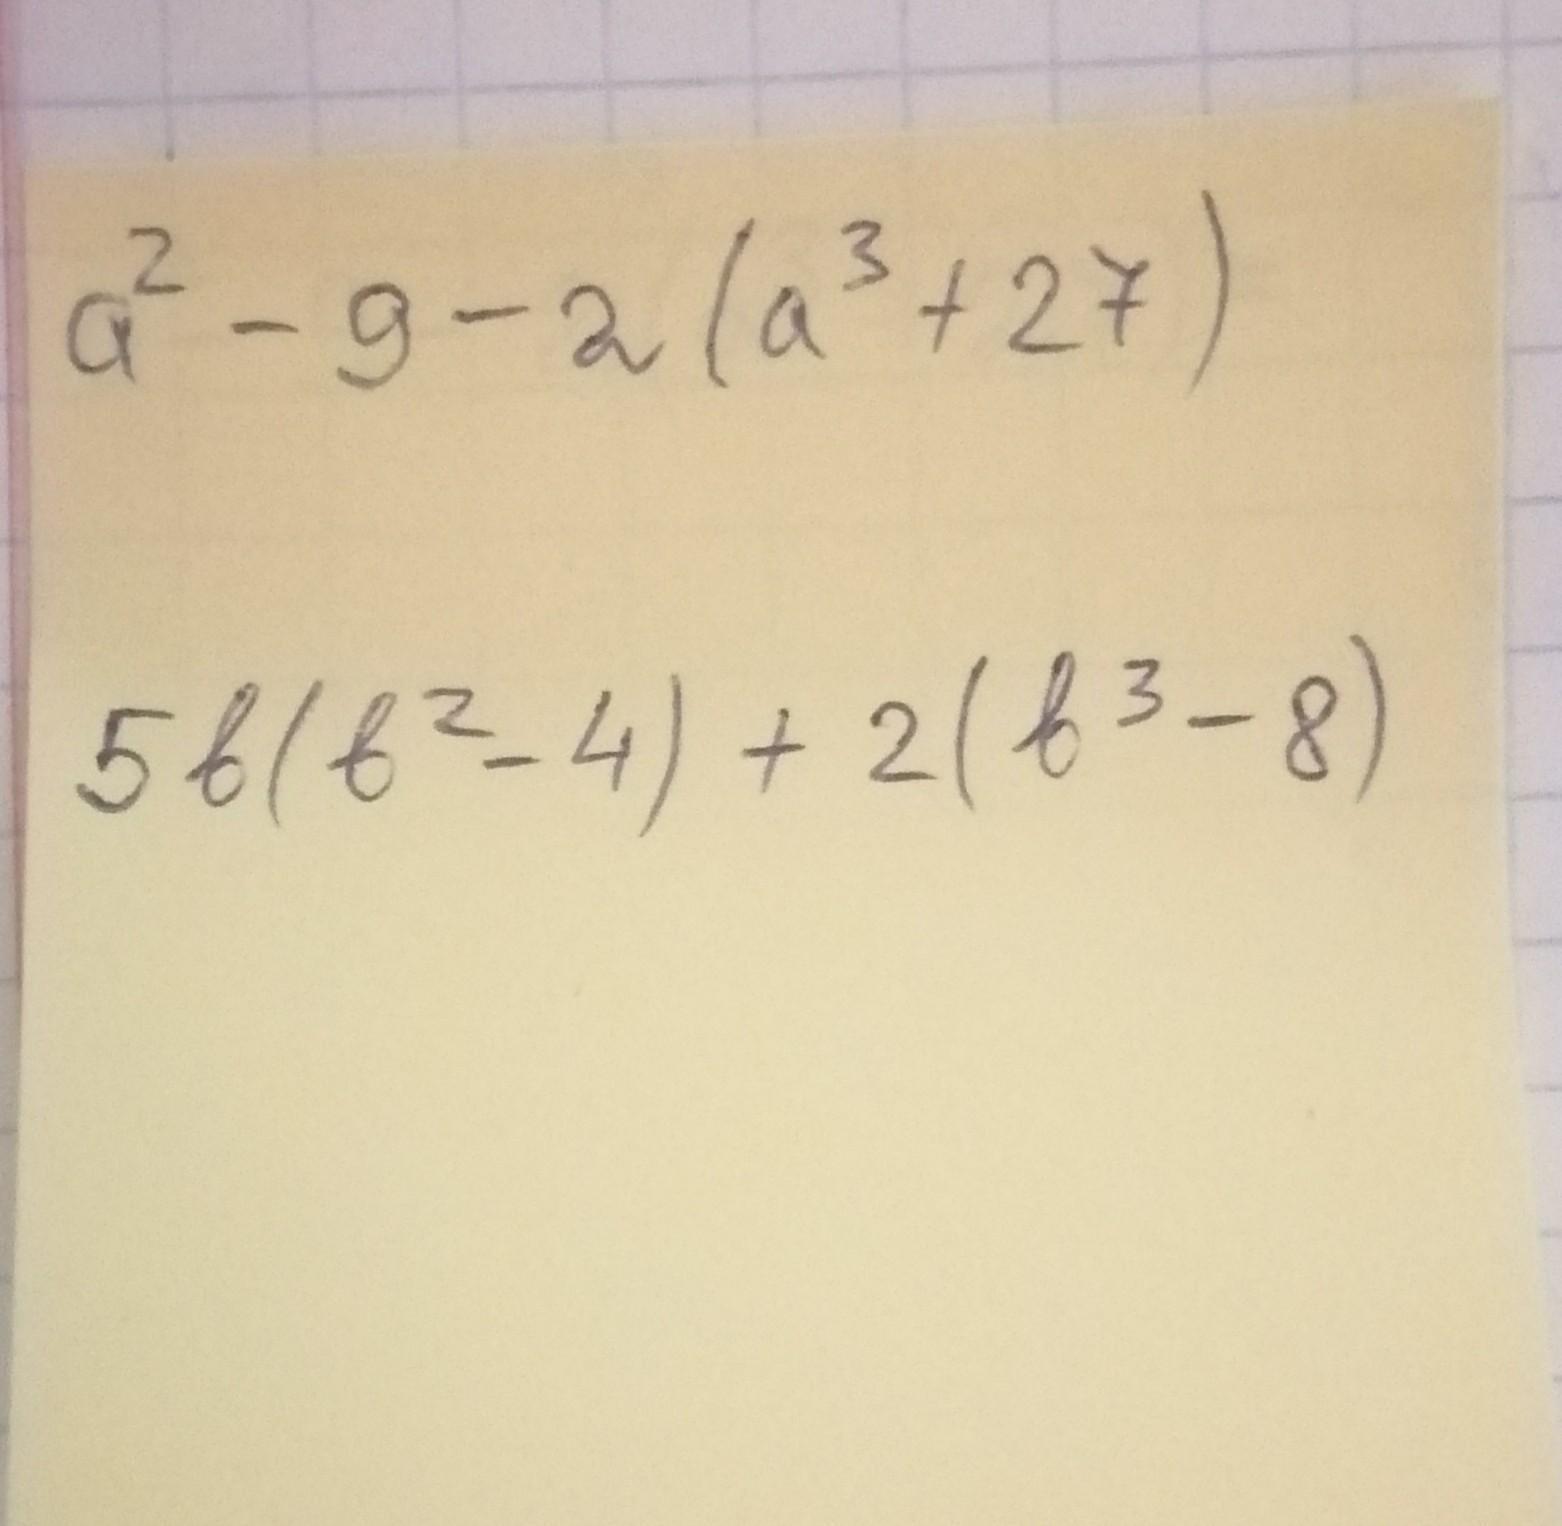 a² - 9 - 2(a³ + 27)
5b(b² - 4) + 2(b³ - 8)